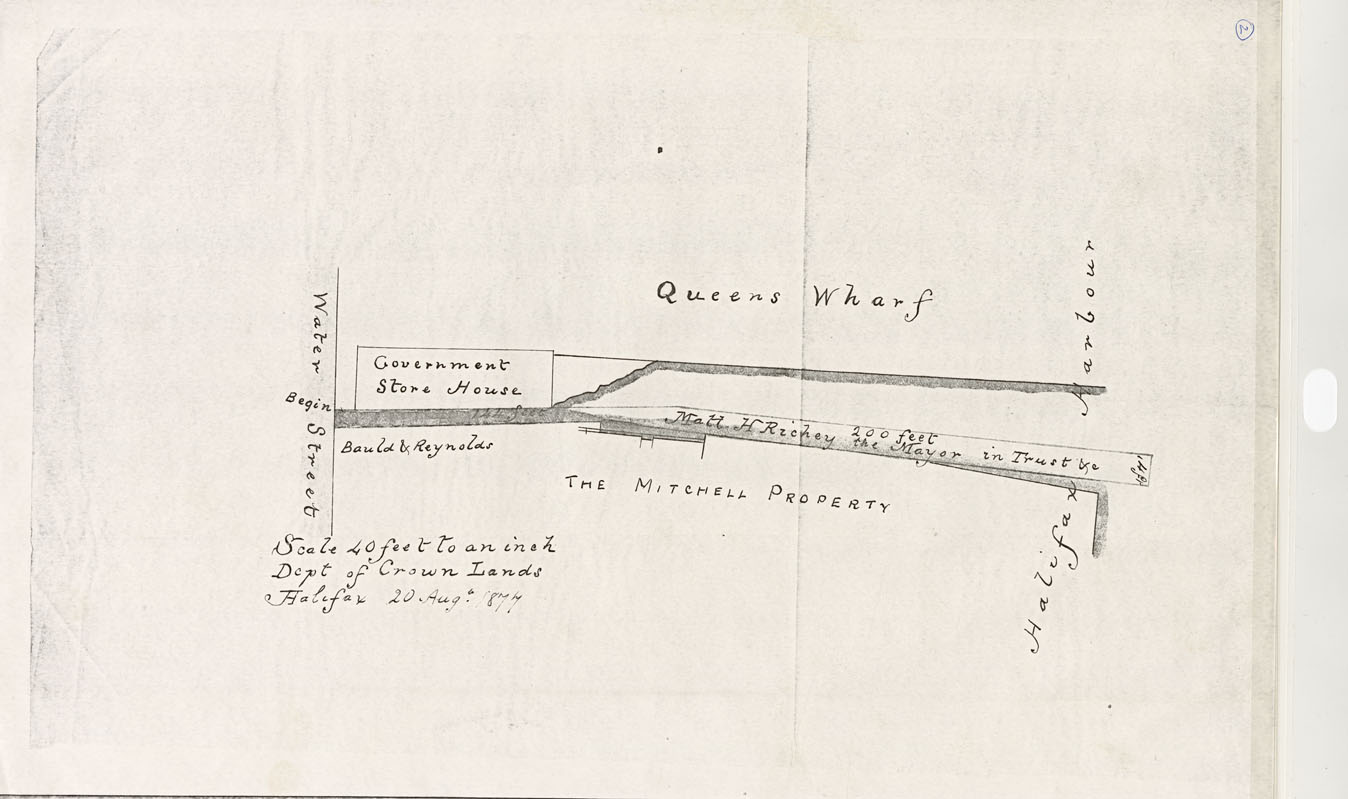 2
Queens Wharf
Water Street
Government
Store House
Begin
Matt H Richey 200 feet
the Mayor in Trust &c
Bauld & Reynolds
THE MITCHELL PROPERTY
Halifax Harbour
Scale 40 feet to an inch
Dept of Crown Lands
Halifax 20 Augt 1877